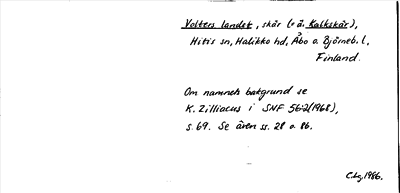 Volters landet, skär (r.ä. Kalkskär),
Hitis sn, Halikko hd, Åbo o. Björneb. l,
Finland.
Om namnets bakgrund se
K. Zilliacus i SNF 56-2(1968),
s. 69. Se även ss. 28 o. 86.
C.hg. 1986.